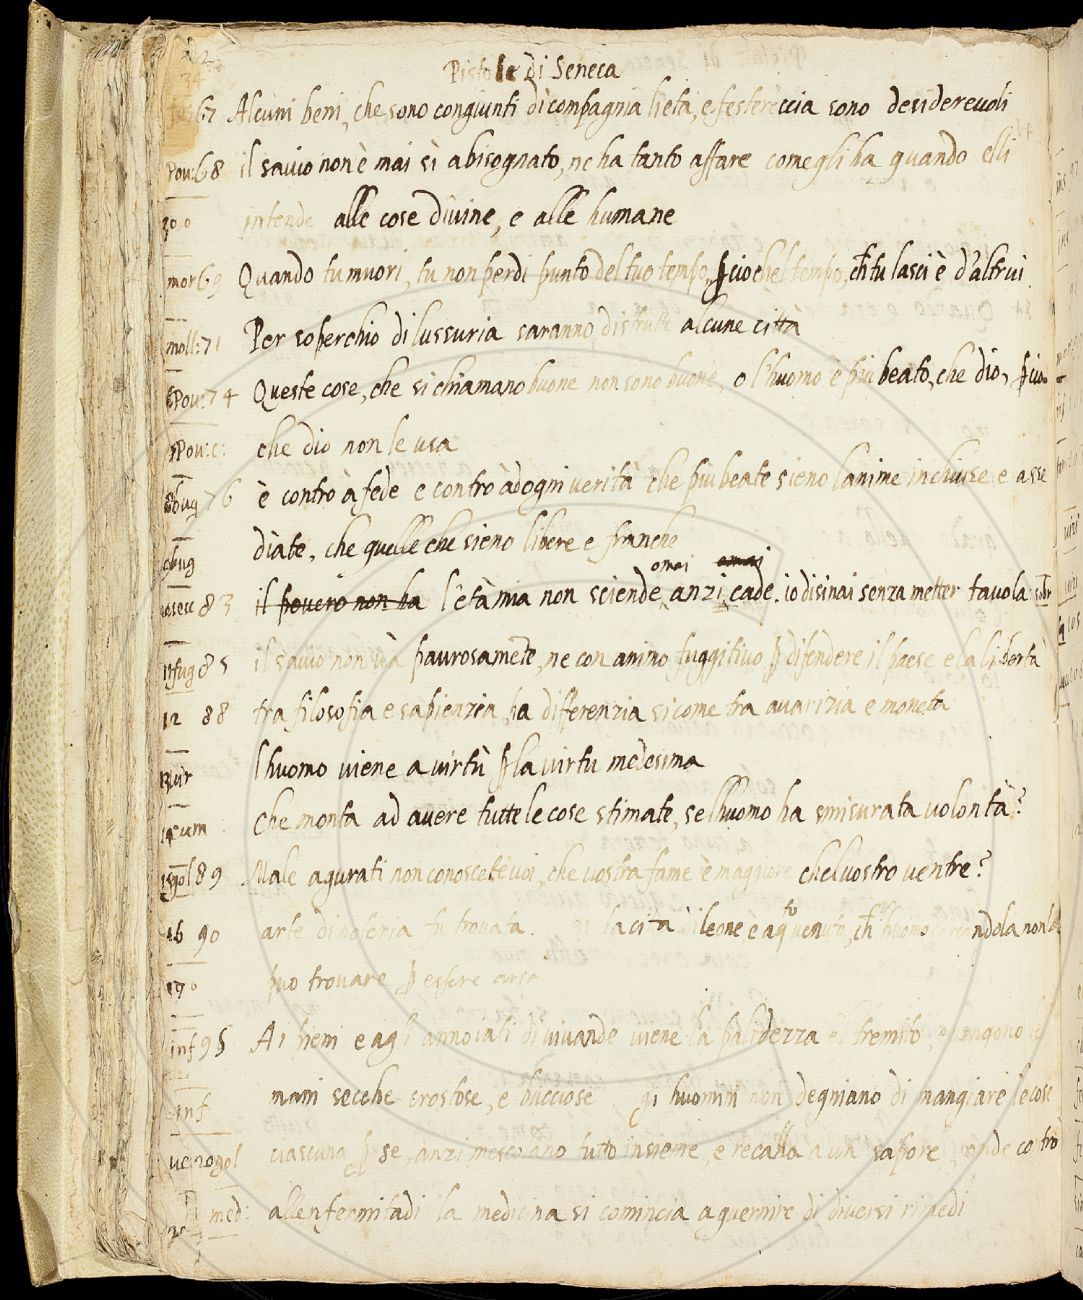 Pistole di Seneca
67 Alcuni beni, che sono congiunti di compagnia lieta, e festereccia sono desiderevoli
Pov: 68 il savio non è mai sì abisognato, ne ha tanto affare come gli ha quando elli
intende alle cose divine, e alle humane
mor 69 Quando tu muori, tu non perdi punto del tuo tempo, ꝑcioche l tempo, ch̃ tu lasci è d'altrui
moll: 71 Per soperchio di lussuria saranno distrutte alcune citta
Pov: 74 Queste cose, che si chiamano buone non sono buone, o l'huomo è piu beato, che dio, ꝑcio-
Pov: c: che dio non le usa
bug 76 è contro à fede e contro àd ogni verità che piu beate sieno lanime inchiuse e asse
bug diate, che quelle che sieno libere e franche
omai omai
secc 83 il povero non ha l'età mia non sciende, anzi cade. io disinai senza metter tavola sobr
11 fug 85 il savio non và paurosamẽte, ne con animo fuggitivo ꝑ difendere il paese e la libertà
12 88 tra filosofia e sapienzia, ha differenzia si come tra avarizia e moneta
13 vir l huomo viene a virtù ꝑ la virtu medesima
14 cum Che monta ad avere tutte le cose stimate, se lhuomo ha smisurata volontà?
15 gol 89 Male agurati non conoscete voi, che vostra fame è maggiore chel vostro ventre?
16 90 arte di trovata. la cità di leone è aqto venuta, ch̃ huomo cercãdola non la
puo trovare ꝑ essere arsa
inf 95 Ai pieni e agl annoiati di vivande viene la palidezza e l tremito, e vengono
inf mani secche crostose, e bucciose gi huomini non degniano di mangiare le cose
gol ciascuna ꝑ se, anzi mescolano tutto insieme, e recalla a un sapore, onde cõtro
med: allenfermitadi la medicina si comincia a guernire di diversi rimedi